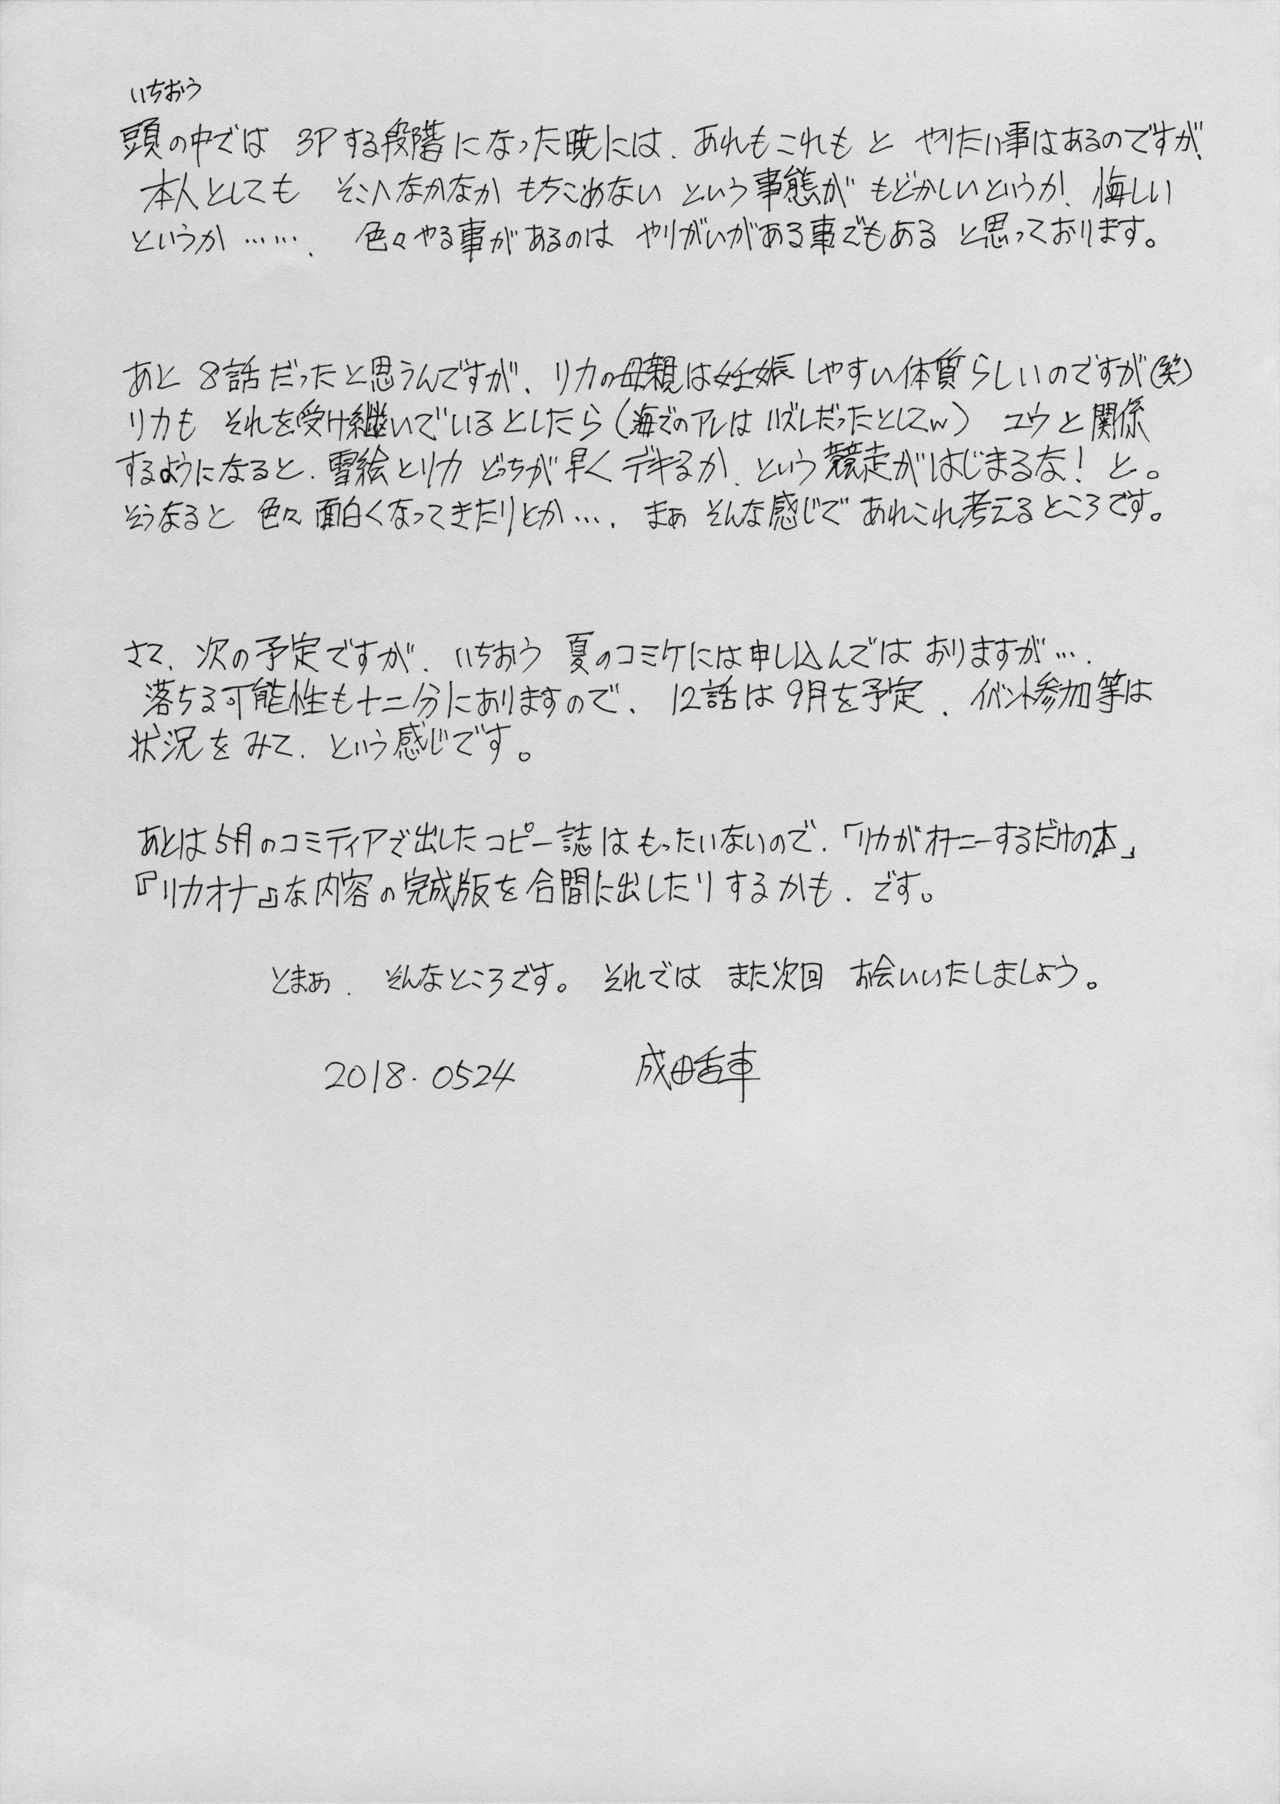 いちおう
頭の中では 3Pする段階になった暁には、あれもこれもと やりたい事はあるのですが、
本人としても そこへなかなか もちこめない という事態が もどかしいというか、悔しい
というか……、色々やる事があるのは やりがいがある事でもある と思っております。
あと 8話だったと思うんですが、リカの母親は妊娠しやすい体質らしいのですが(笑)
リカも それを受け継いでいるとしたら(海でのアレは ハズレだったとしてw) ユウと関係
するようになると、雪絵とリカ どっちが早くデキるか、という競走がはじまるな! と。
そうなると 色々面白くなってきたりとか…、まぁ そんな感じで あれこれ考えるところです。
さて、次の予定ですが、いちおう 夏のコミケには申し込んでは おりますが…、
落ちる可能性も十二分にありますので、12話は9月を予定、イベント参加等は
状況をみて、という感じです。
あとは5月のコミティアで出したコピー誌はもったいないので、「リカがオナニーするだけの本」
『リカオナ』な内容の完成版を合間に出したりするかも、です。
とまぁ、そんなところです。それでは また次回 お会いいたしましょう。
2018.0524 成田香車